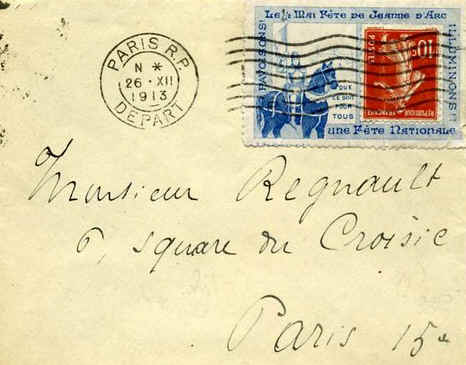 PARIS R.P.
N *
26 · XII
1913
DEPART
Le Mai Fête de Jeanne d'Arc
PAVOISONS!
ILLUMINONS!!
10c
POSTES
REPUBLIQUE FRANÇAISE
POUR
TOUS
une Fête Nationale
Monsieur Regnault
6, square du Croisic
Paris 15e